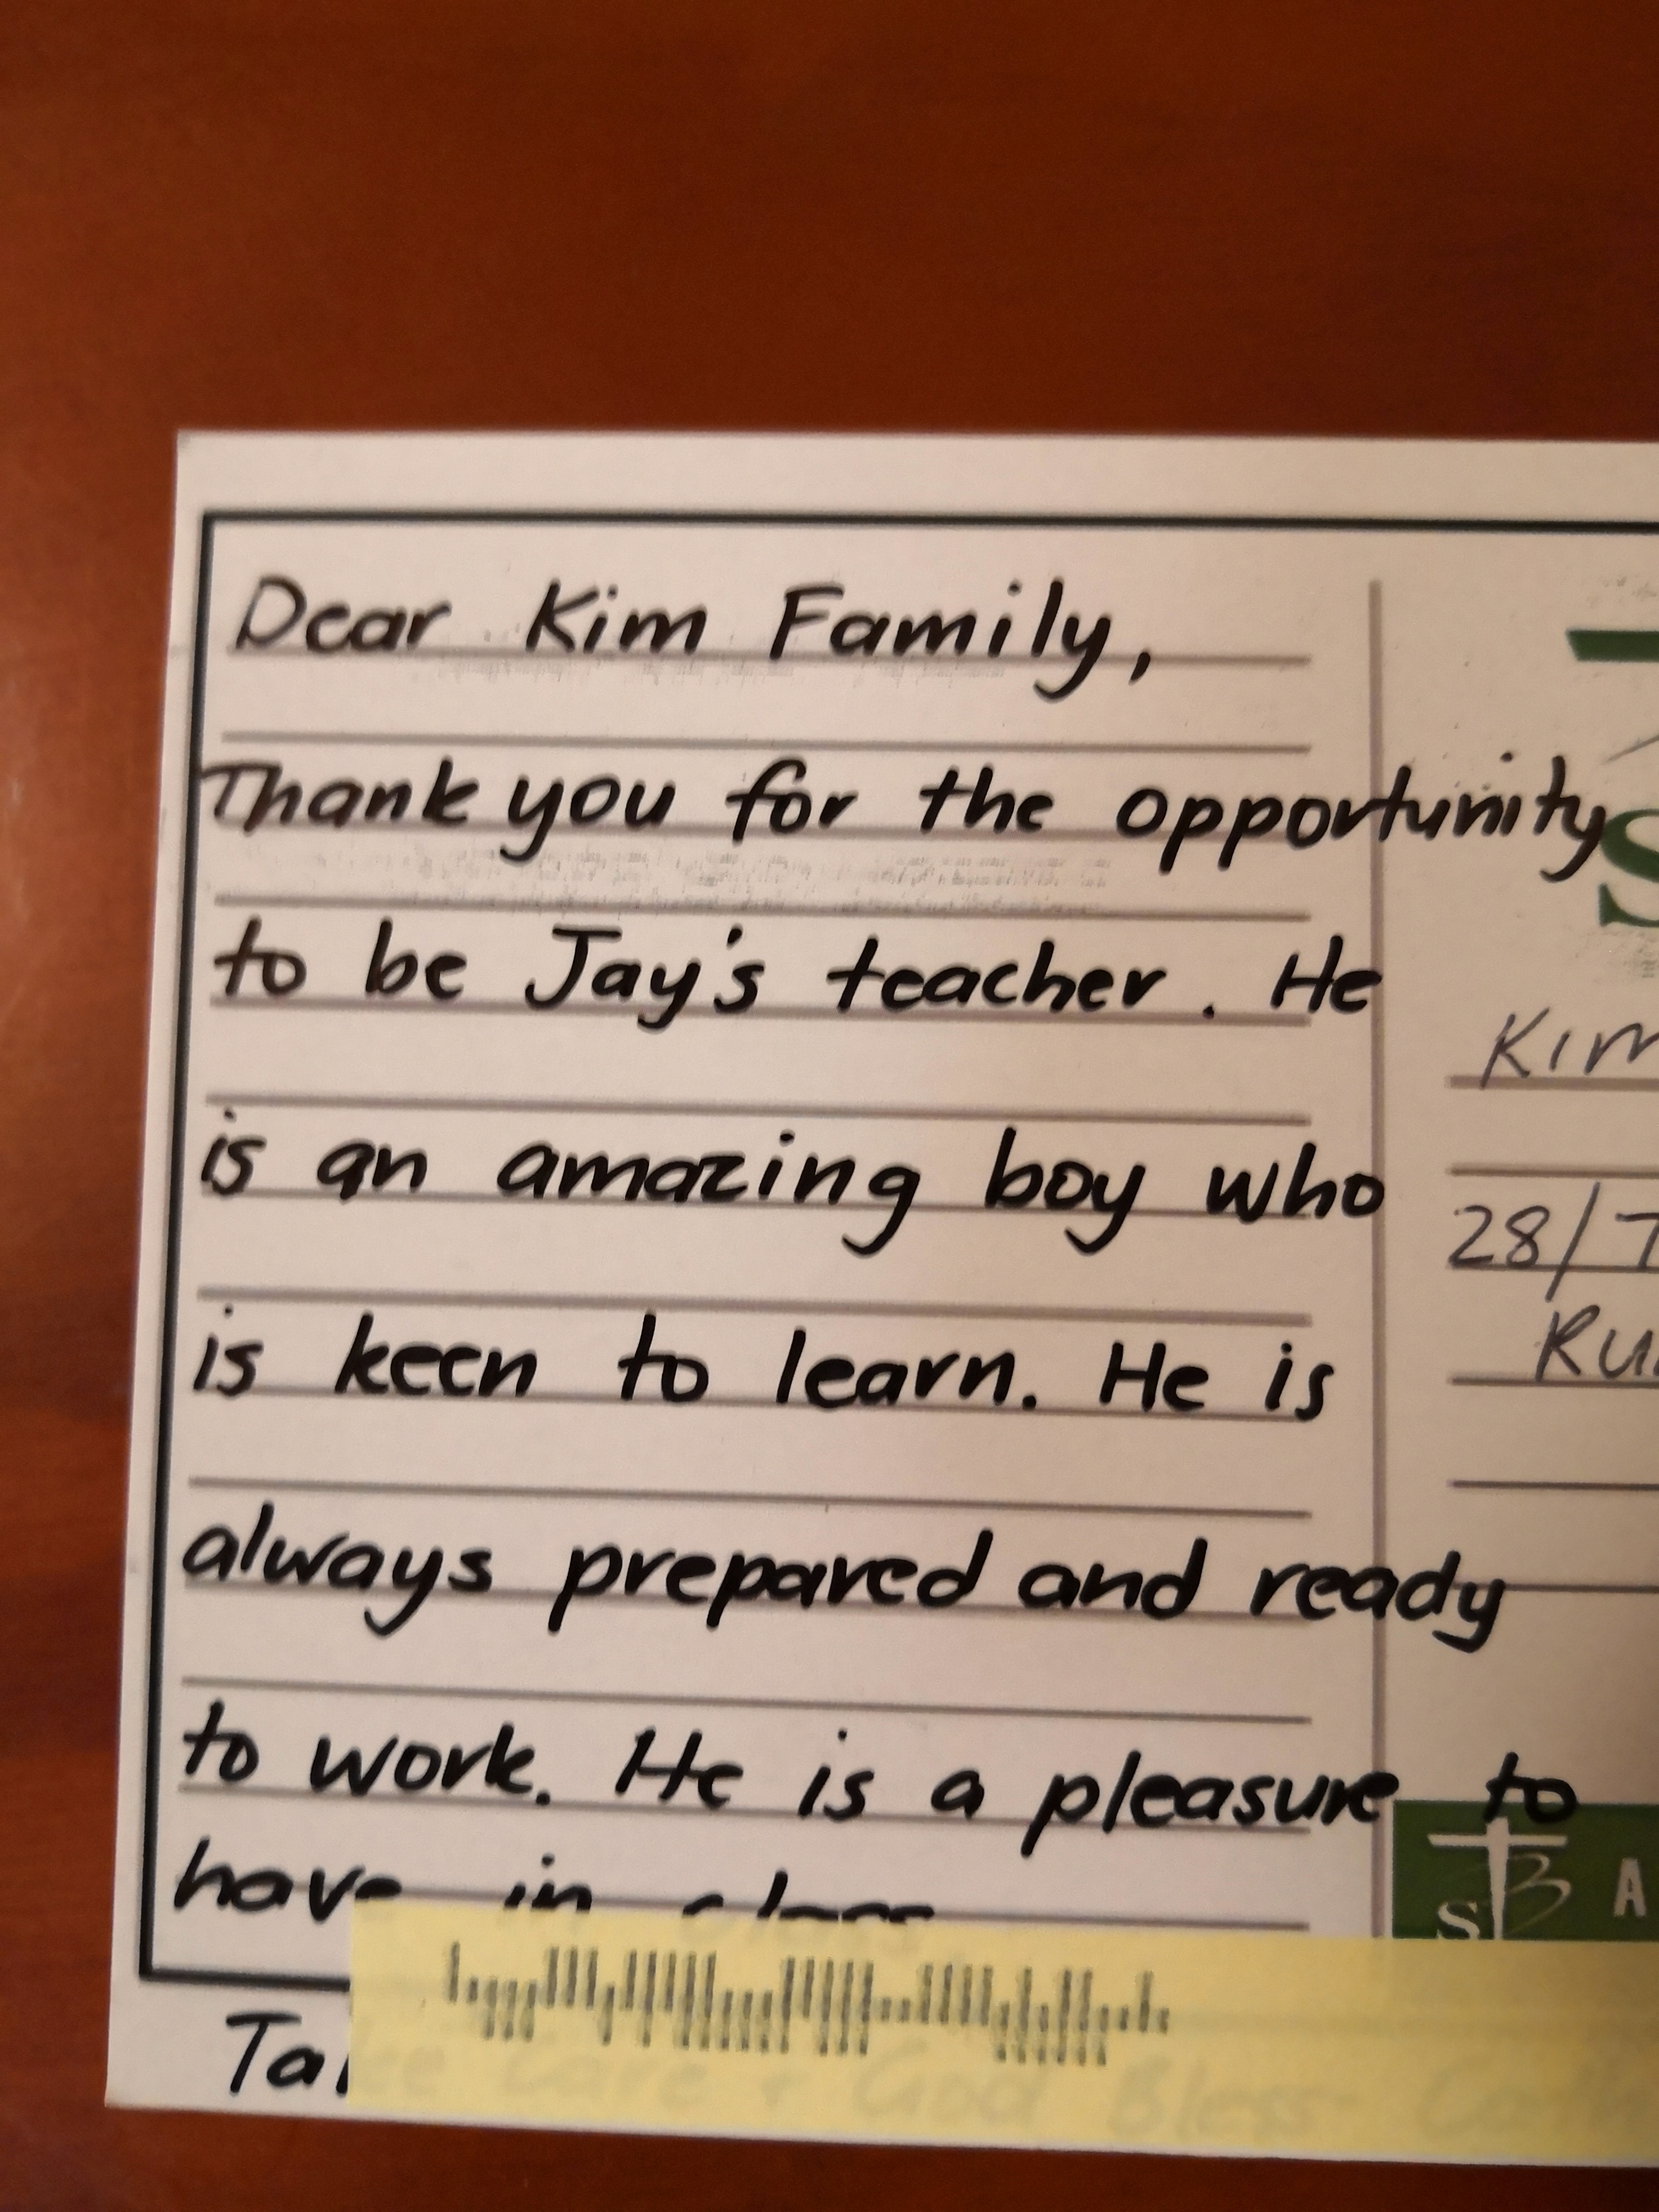 Dear Kim Family,
Thank you for the opportunity
to be Jay's teacher. He
is an amazing boy who
is keen to learn. He is
always prepared and ready
to work. He is a pleasure to
have in class.
Take Care + God Bless
Kim
28/
STB A